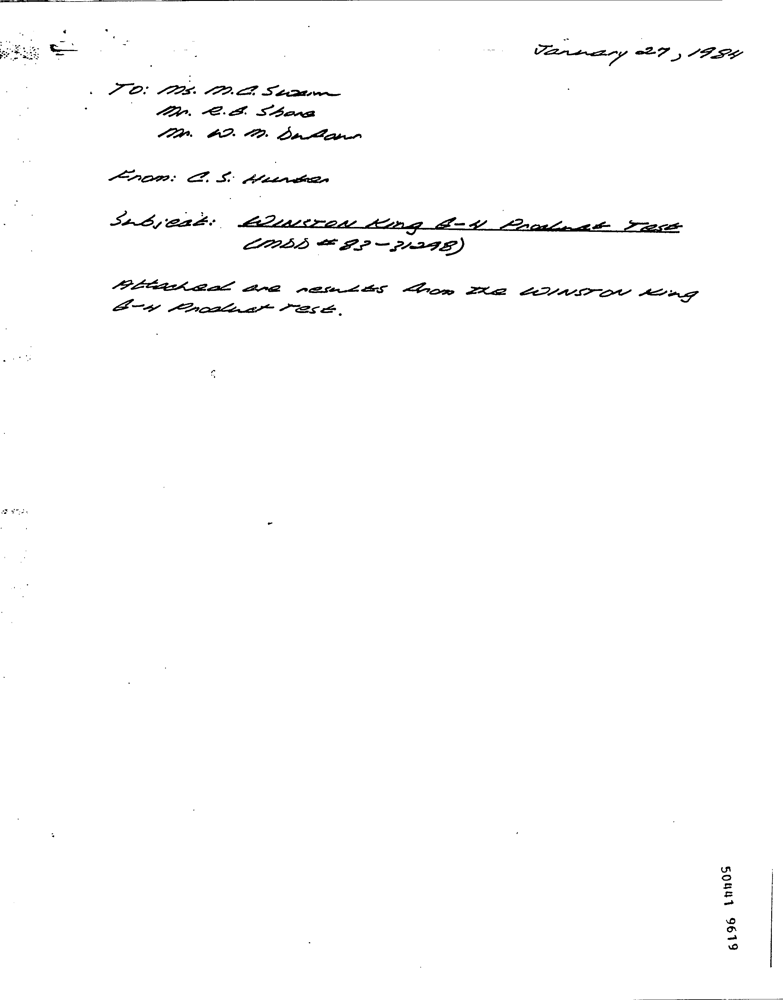 January 27, 1984
To: Ms. M.A. Swaim
Mr. R.B. Shore
Mr. W. M.
From: C. S. Hunter
Subject: WINSTON King B-4 Product Test
(MDD # 83-31298)
Attached are results from the WINSTON King
B-4 Product Test.
50441 9619